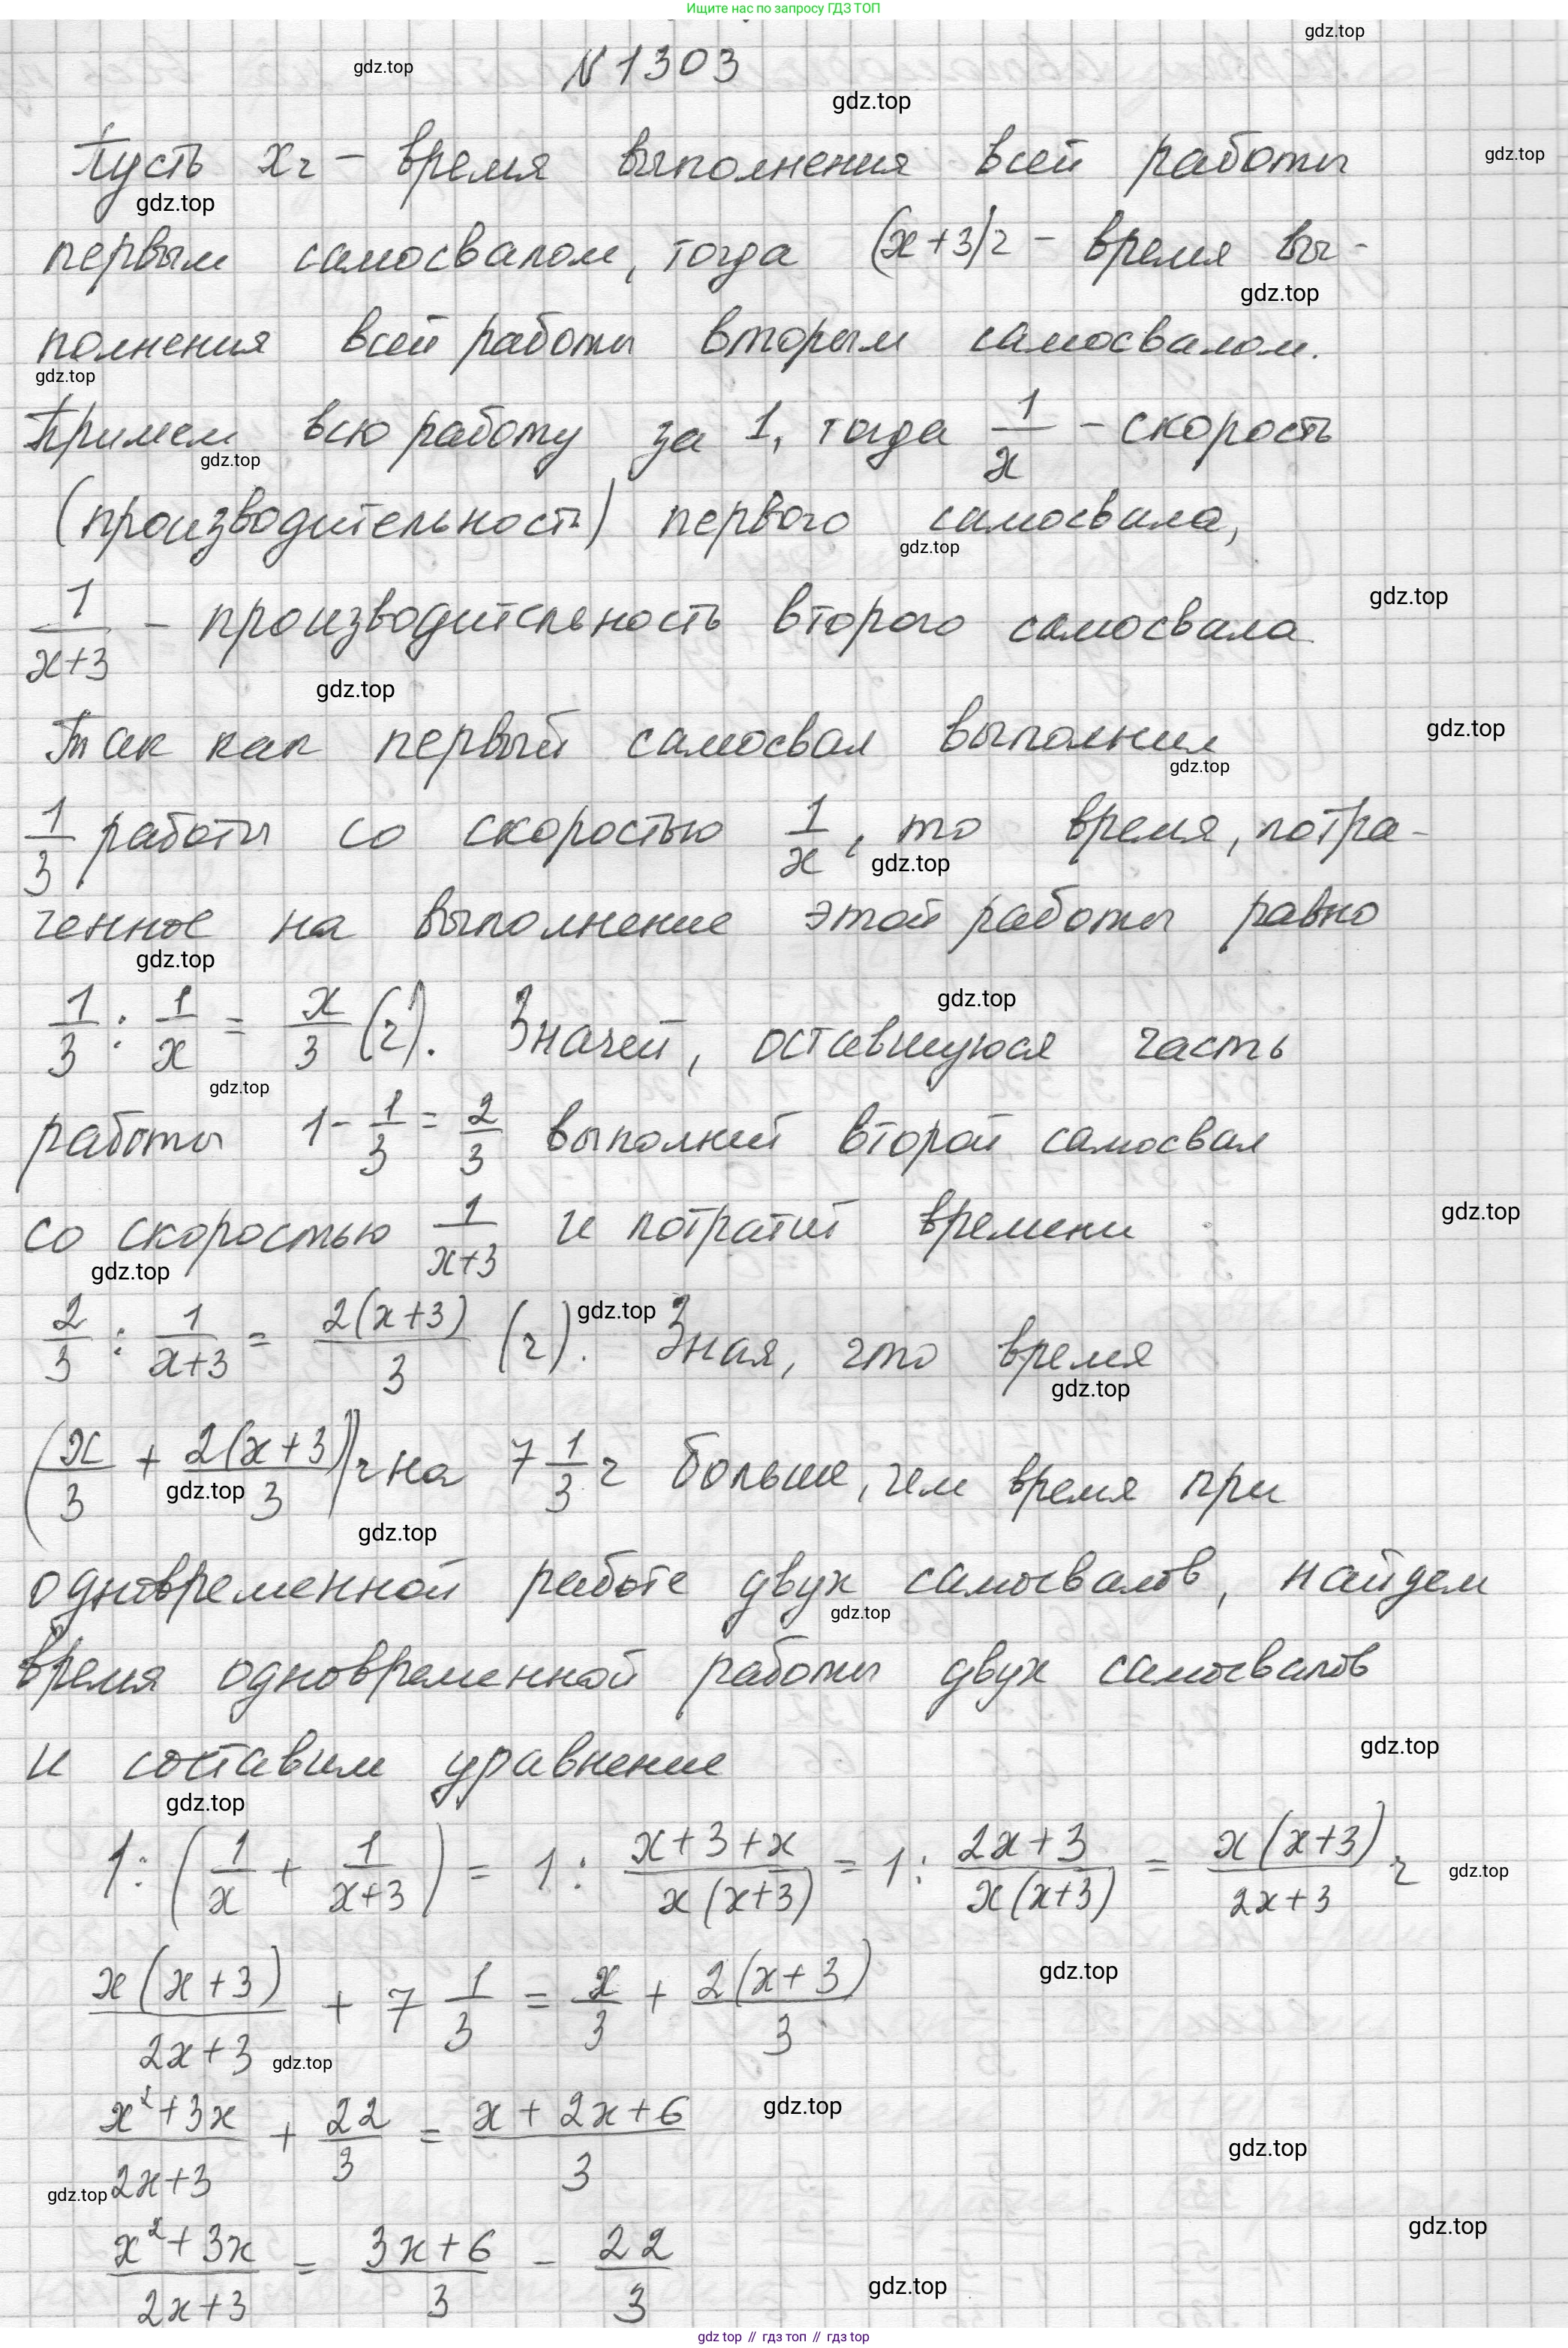 Ищите нас по запросу ГДЗ ТОП
N 1303
Пусть x ч – время выполнения всей работы
первым самосвалом, тогда (x+3) ч – время вы-
полнения всей работы вторым самосвалом.
Примем всю работу за 1, тогда 1/x – скорость
(производительность) первого самосвала,
1/(x+3) – производительность второго самосвала.
Так как первый самосвал выполнил
1/3 работы со скоростью 1/x, то время, потра-
ченное на выполнение этой работы равно
1/3 : 1/x = x/3 (ч). Значит, оставшуюся часть
работы 1 - 1/3 = 2/3 выполнит второй самосвал
со скоростью 1/(x+3) и потратит времени
2/3 : 1/(x+3) = 2(x+3)/3 (ч). Зная, что время
(x/3 + 2(x+3)/3) ч на 7 1/3 ч больше, чем время при
одновременной работе двух самосвалов, найдем
время одновременной работы двух самосвалов
и составим уравнение
1 : (1/x + 1/(x+3)) = 1 : (x+3+x)/(x(x+3)) = 1 : (2x+3)/(x(x+3)) = x(x+3)/(2x+3) ч
x(x+3)/(2x+3) + 7 1/3 = x/3 + 2(x+3)/3
(x²+3x)/(2x+3) + 22/3 = (x+2x+6)/3
(x²+3x)/(2x+3) = (3x+6)/3 - 22/3
gdz top // гдз топ // гдз top